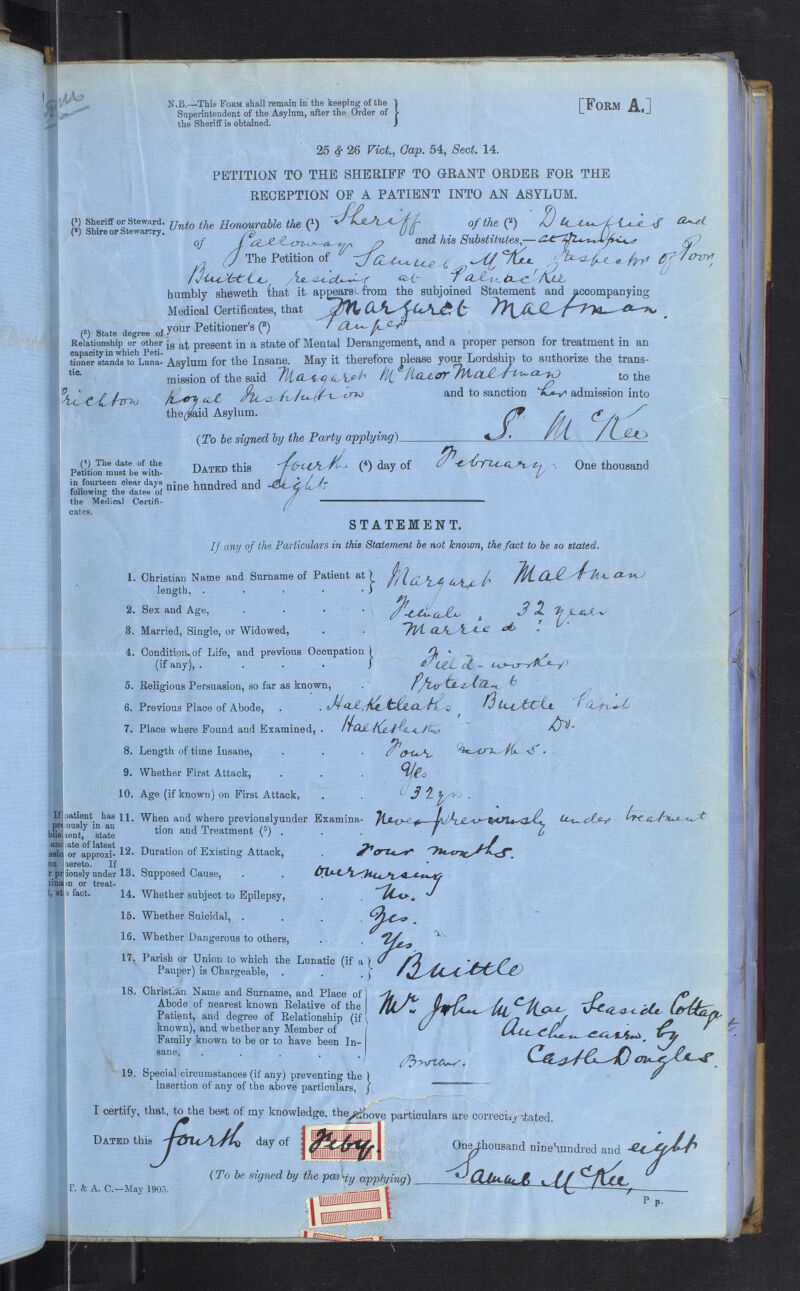 N.B.—This Form shall remain in the keeping of the
Superintendent of the Asylum, after the Order of
the Sheriff is obtained.
[Form A.]
25 & 26 Vict., Cap. 54, Sect. 14.
PETITION TO THE SHERIFF TO GRANT ORDER FOR THE
RECEPTION OF A PATIENT INTO AN ASYLUM.
(¹) Sheriff or Steward.
(²) Shire or Stewartry.
Unto the Honourable the (¹) Sheriff of the (²) Dumfries and
of Galloway and his Substitutes,— at Dumfries
The Petition of Samuel McKee Inspector of Poor,
Buittle, residing at Palnac'kie
humbly sheweth that it appears from the subjoined Statement and accompanying
Medical Certificates, that Margaret Maltman.
(³) State degree of
Relationship or other
capacity in which Peti-
tioner stands to Luna-
tic.
your Petitioner's (³) Pauper
is at present in a state of Mental Derangement, and a proper person for treatment in an
Asylum for the Insane. May it therefore please your Lordship to authorize the trans-
mission of the said Margaret McNae or Maltman to the
Crichton Royal Institution and to sanction her admission into
the said Asylum.
(To be signed by the Party applying) S. McKee
(⁴) The date of the
Petition must be with-
in fourteen clear days
following the dates of
the Medical Certifi-
cates.
Dated this fourth (⁴) day of February One thousand
nine hundred and eight
STATEMENT.
If any of the Particulars in this Statement be not known, the fact to be so stated.
1. Christian Name and Surname of Patient at
length, . . . . . Margaret Maltman
2. Sex and Age, . . . . Female, 32 years
3. Married, Single, or Widowed, . . Married.
4. Condition of Life, and previous Occupation
(if any), . . . . Field-worker
5. Religious Persuasion, so far as known, . Protestant
6. Previous Place of Abode, . . Halketleaths, Buittle Parish
7. Place where Found and Examined, . Halketleaths Do.
8. Length of time Insane, . . . Four months.
9. Whether First Attack, . . . Yes
10. Age (if known) on First Attack, . . 32 yrs.
If patient has
previously in an
ment, state
ate of latest
or approxi-
hereto. If
previously under
n or treat-
fact.
11. When and where previously under Examina-
tion and Treatment (⁵) . . . Never previously under treatment
12. Duration of Existing Attack, Four months.
13. Supposed Cause, . . over nursing
14. Whether subject to Epilepsy, . . No.
15. Whether Suicidal, . . . . Yes.
16. Whether Dangerous to others, . . Yes
17. Parish or Union to which the Lunatic (if a
Pauper) is Chargeable, . . . Buittle
18. Christian Name and Surname, and Place of
Abode of nearest known Relative of the
Patient, and degree of Relationship (if
known), and whether any Member of
Family known to be or to have been In-
sane, . . . . .
Mr. John McNae, Seaside Cottage,
Auchencairn, by
Castle Douglas.
Brother.
19. Special circumstances (if any) preventing the
insertion of any of the above particulars,
I certify, that, to the best of my knowledge, the above particulars are correctly stated.
Dated this fourth day of Feby. One thousand nine hundred and eight
(To be signed by the party applying) Samuel McKee,
T. & A. C.—May 1905.
P p.